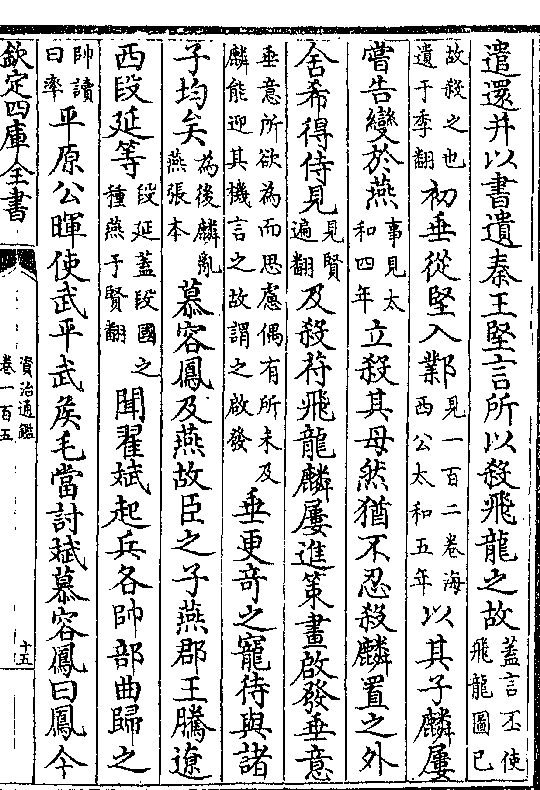 遣還并以書遺秦王堅言所以殺飛龍之故蓋言丕使飛龍圖已
故殺之也遺于季翻初垂從堅入鄴見一百二卷海西公太和五年以其子麟屢
嘗告變於燕事見太和四年立殺其母然猶不忍殺麟置之外
舍希得侍見見賢遍翻及殺苻飛龍麟屢進策畫啟發垂意
垂意所欲為而思慮偶有所未及麟能迎其機言之故謂之啟發垂更竒之寵待與諸
子均矣為後麟亂燕張本慕容鳳及燕故臣之子燕郡王騰遼
西段延等段延蓋段國之種燕于賢翻聞翟斌起兵各帥部曲歸之
帥讀曰率平原公暉使武平武侯毛當討斌慕容鳳曰鳳今
欽定四庫全書
資治通鑑
卷一百五
十五